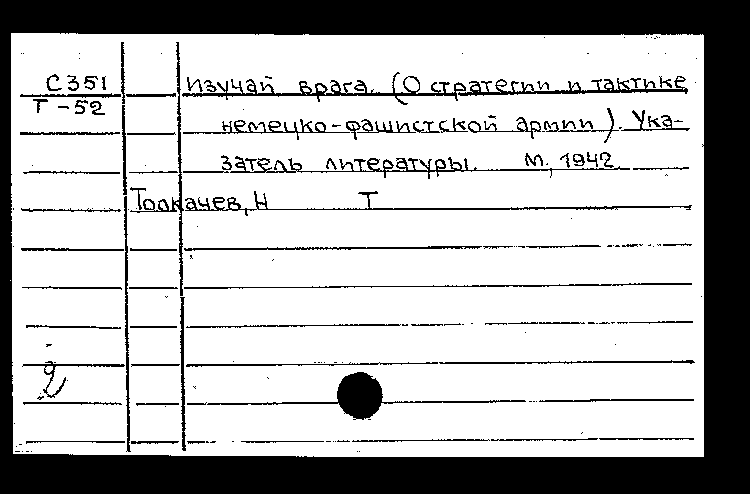 С351
Т-52
Изучай врага. (О стратегии и тактике
немецко-фашистской армии). Ука-
затель литературы. М., 1942
Толкачев, Н Т
2